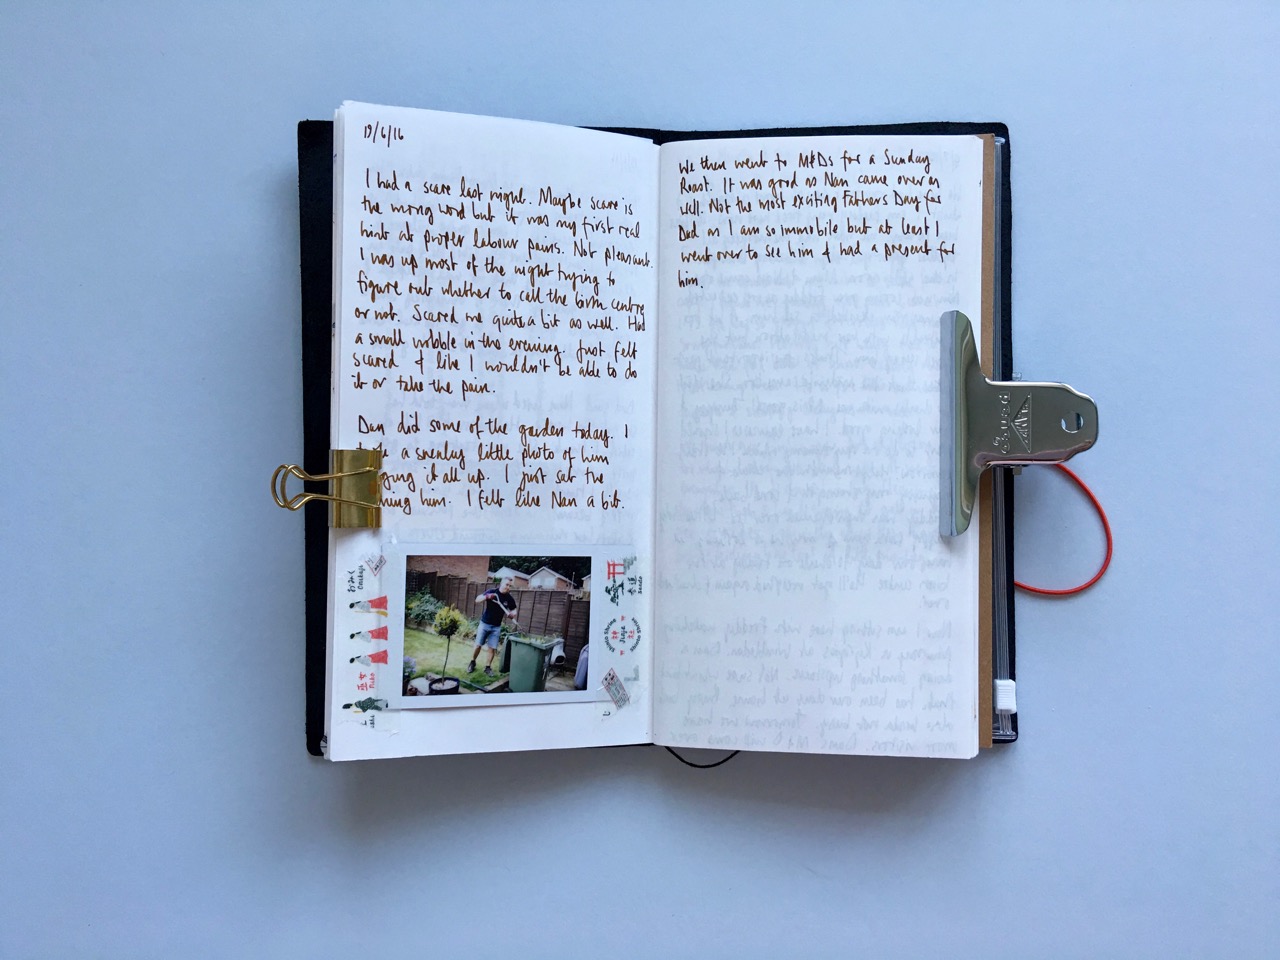 19/6/16
I had a scare last night. Maybe scare is
the wrong word but it was my first real
hint at proper labour pains. Not pleasant.
I was up most of the night trying to
figure out whether to call the birth centre
or not. Scared me quite a bit as well. Had
a small wobble in the evening. Just felt
scared & like I wouldn't be able to do
it or take the pain.
Dan did some of the garden today. I
a sneaky little photo of him
it all up. I just sat the
him. I felt like Nan a bit.
おみくじ
Omikuji
巫女
Miko
参道
Sando
Shinto Shrine
神社
Jinja
Shinto Shrine
We then went to M&Ds for a Sunday
Roast. It was good as Nan came over as
well. Not the most exciting Fathers Day for
Dad as I am so immobile but at least I
went over to see him & had a present for
him.